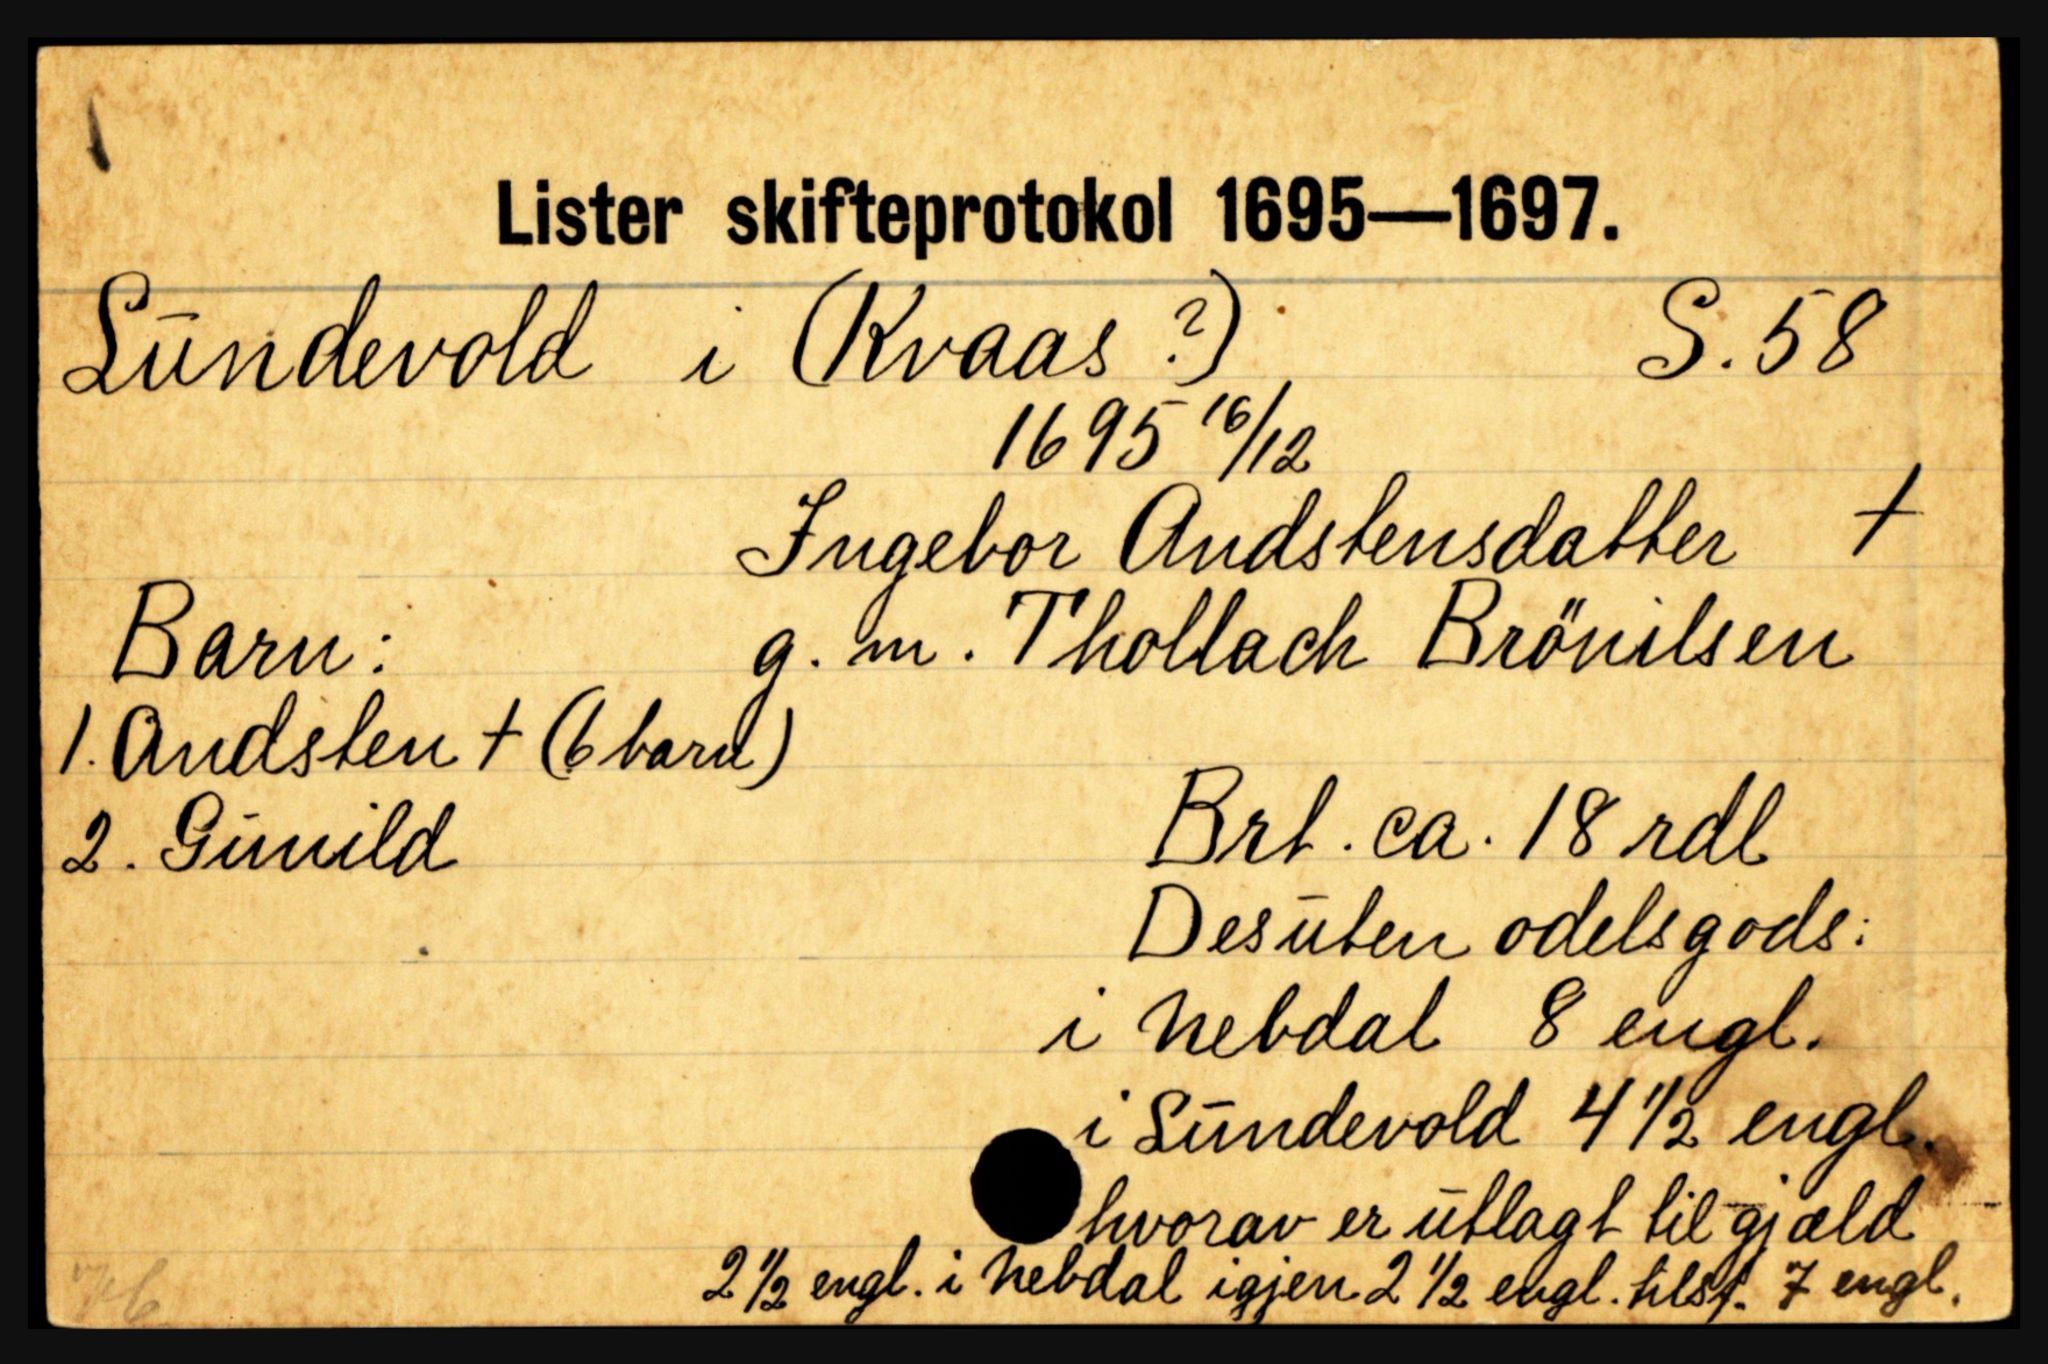 Lister skifteprotokol 1695—1697.
Sündevold i (Kvaas ?) S. 58
1695 16/12
Ingebor Andstensdatter †
Barn: g. m. Thollach Brönilsen
1. Andsten † (6 barn)
2. Günild
Brt. ca. 18 rdl
Desüten odelsgods:
i Nebdal 8 engl.
i Sündevold 4 1/2 engl.
hvorav er ütlagt til gjæld
2 1/2 engl. i Nebdal igjen 2 1/2 engl. tils. 7 engl.